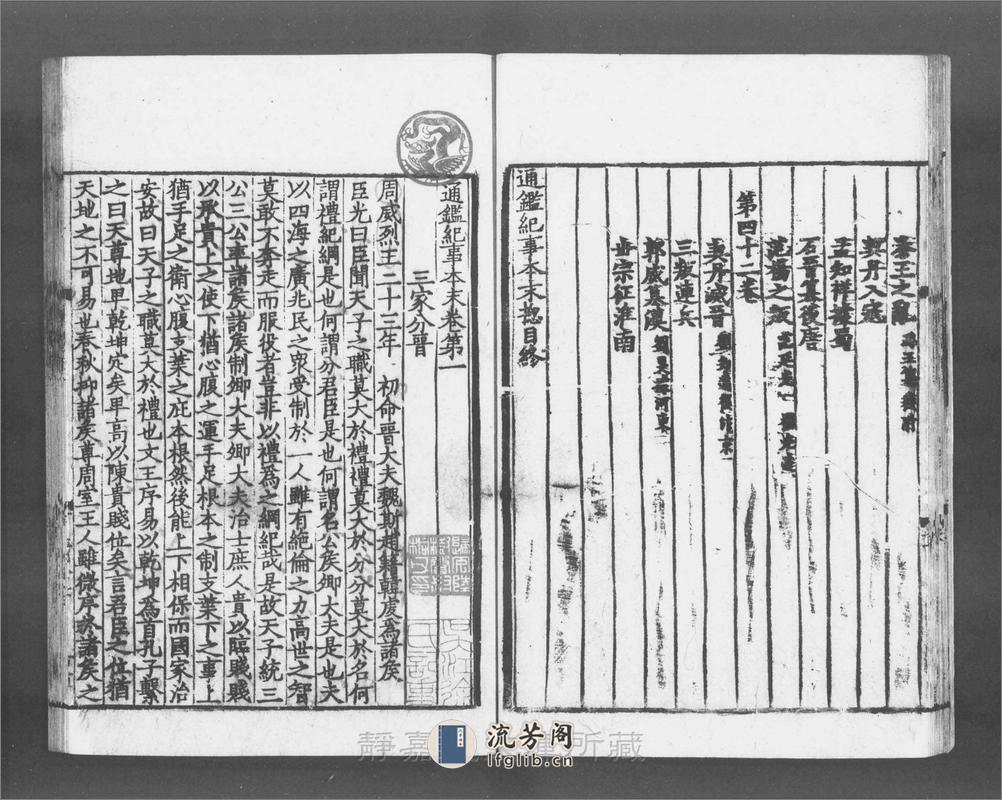 秦王之亂
契丹入寇
孟知祥據蜀
石晉篡後唐
范陽之叛
第四十二卷
契丹滅晉
三叛連兵
郭威篡漢
世宗征淮南
通鑑紀事本末揔目終
通鑑紀事本末卷第一
三家分晉
周威烈王二十三年 初命晉大夫魏斯趙籍韓虔爲諸矦
臣光曰臣聞天子之職莫大於禮禮莫大於分分莫大於名何
謂禮紀綱是也何謂分君臣是也何謂名公矦卿大夫是也夫
以四海之廣兆民之衆受制於一人雖有絶倫之力高世之智
莫敢不奔走而服役者豈非以禮爲之綱紀哉是故天子統三
公三公率諸矦諸矦制卿大夫卿大夫治士庶人貴以臨賤賤
以承貴上之使下猶心腹之運手足根本之制支葉下之事上
猶手足之衛心腹支葉之庇本根然後能上下相保而國家治
安故曰天子之職莫大於禮也文王序易以乾坤爲首孔子繫
之曰天尊地卑乾坤定矣卑高以陳貴賤位矣言君臣之位猶
天地之不可易也春秋抑諸矦尊周室王人雖微序於諸矦之
靜嘉 所藏
流芳阁
lfglib.cn